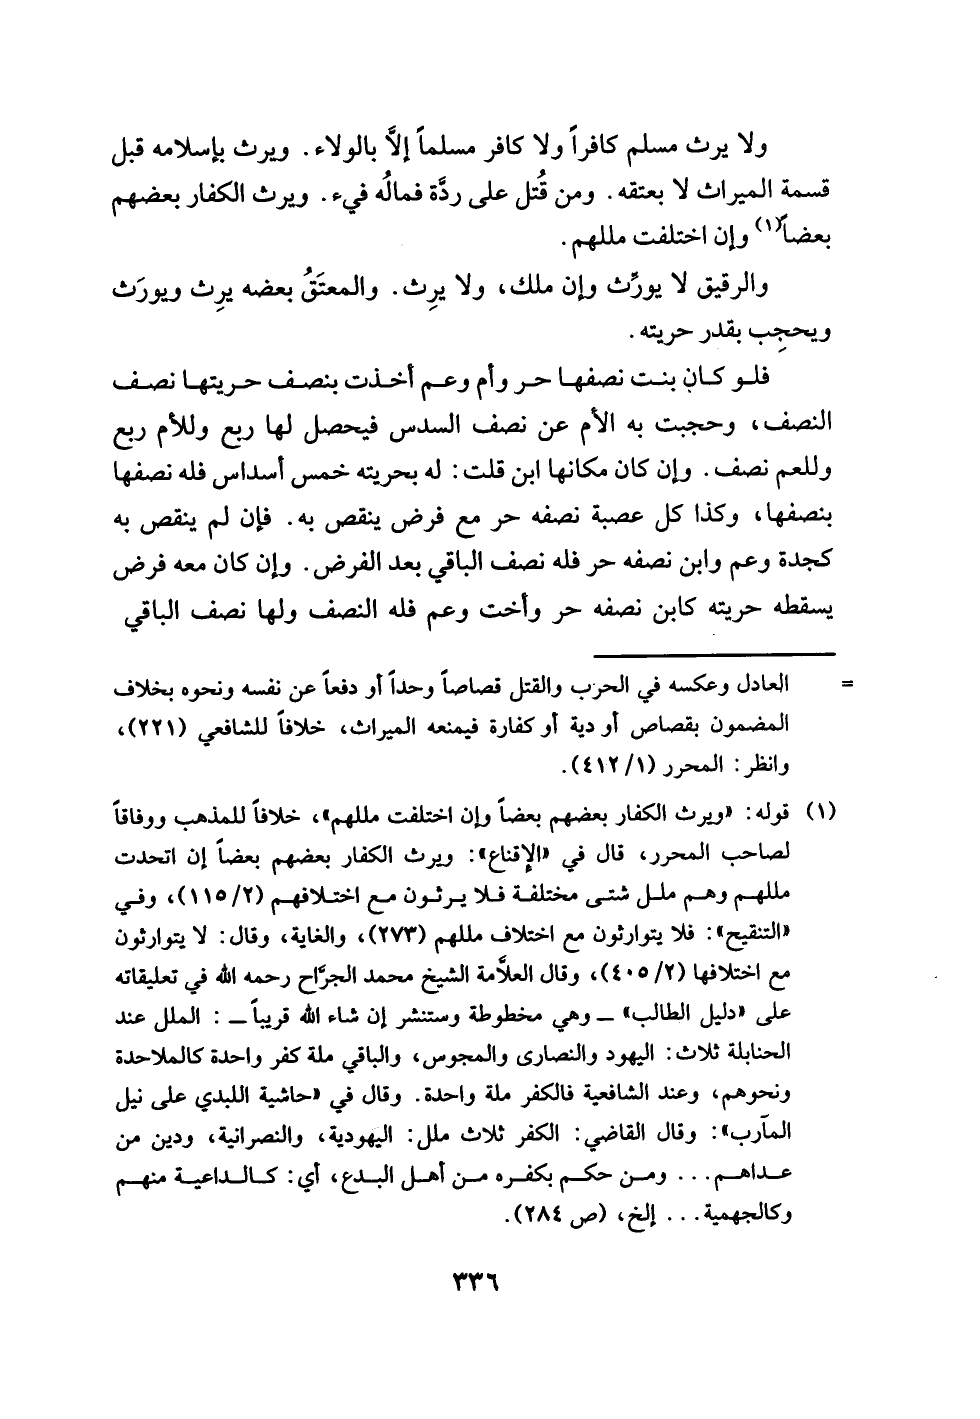 ولا يرث مسلم كافراً ولا كافر مسلماً إلاَّ بالولاء. ويرث بإسلامه قبل
قسمة الميراث لا بعتقه. ومن قُتل على ردَّة فمالُه فيء. ويرث الكفار بعضهم
بعضاً(١) وإن اختلفت مللهم.
والرقيق لا يورِّث وإن ملك، ولا يرِث. والمعتَقُ بعضه يرِث ويورَث
ويحجِب بقدر حريته.
فلو كان بنت نصفها حر وأم وعم أخذت بنصف حريتها نصف
النصف، وحجبت به الأم عن نصف السدس فيحصل لها ربع وللأم ربع
وللعم نصف. وإن كان مكانها ابن قلت: له بحريته خمس أسداس فله نصفها
بنصفها، وكذا كل عصبة نصفه حر مع فرض ينقص به. فإن لم ينقص به
كجدة وعم وابن نصفه حر فله نصف الباقي بعد الفرض. وإن كان معه فرض
يسقطه حريته كابن نصفه حر وأخت وعم فله النصف ولها نصف الباقي
= العادل وعكسه في الحرب والقتل قصاصاً وحداً أو دفعاً عن نفسه ونحوه بخلاف
المضمون بقصاص أو دية أو كفارة فيمنعه الميراث، خلافاً للشافعي (٢٢١)،
وانظر: المحرر (١/ ٤١٢).
(١) قوله: «ويرث الكفار بعضهم بعضاً وإن اختلفت مللهم»، خلافاً للمذهب ووفاقاً
لصاحب المحرر، قال في «الإقناع»: ويرث الكفار بعضهم بعضاً إن اتحدت
مللهم وهم ملل شتى مختلفة فلا يرثون مع اختلافهم (٢/ ١١٥)، وفي
«التنقيح»: فلا يتوارثون مع اختلاف مللهم (٢٧٣)، والغاية، وقال: لا يتوارثون
مع اختلافها (٢/ ٤٠٥)، وقال العلاَّمة الشيخ محمد الجرَّاح رحمه الله في تعليقاته
على «دليل الطالب» ــ وهي مخطوطة وستنشر إن شاء الله قريباً ــ : الملل عند
الحنابلة ثلاث: اليهود والنصارى والمجوس، والباقي ملة كفر واحدة كالملاحدة
ونحوهم، وعند الشافعية فالكفر ملة واحدة. وقال في «حاشية اللبدي على نيل
المآرب»: وقال القاضي: الكفر ثلاث ملل: اليهودية، والنصرانية، ودين من
عداهم... ومن حكم بكفره من أهل البدع، أي: كالداعية منهم
وكالجهمية... إلخ، (ص ٢٨٤).
٣٣٦